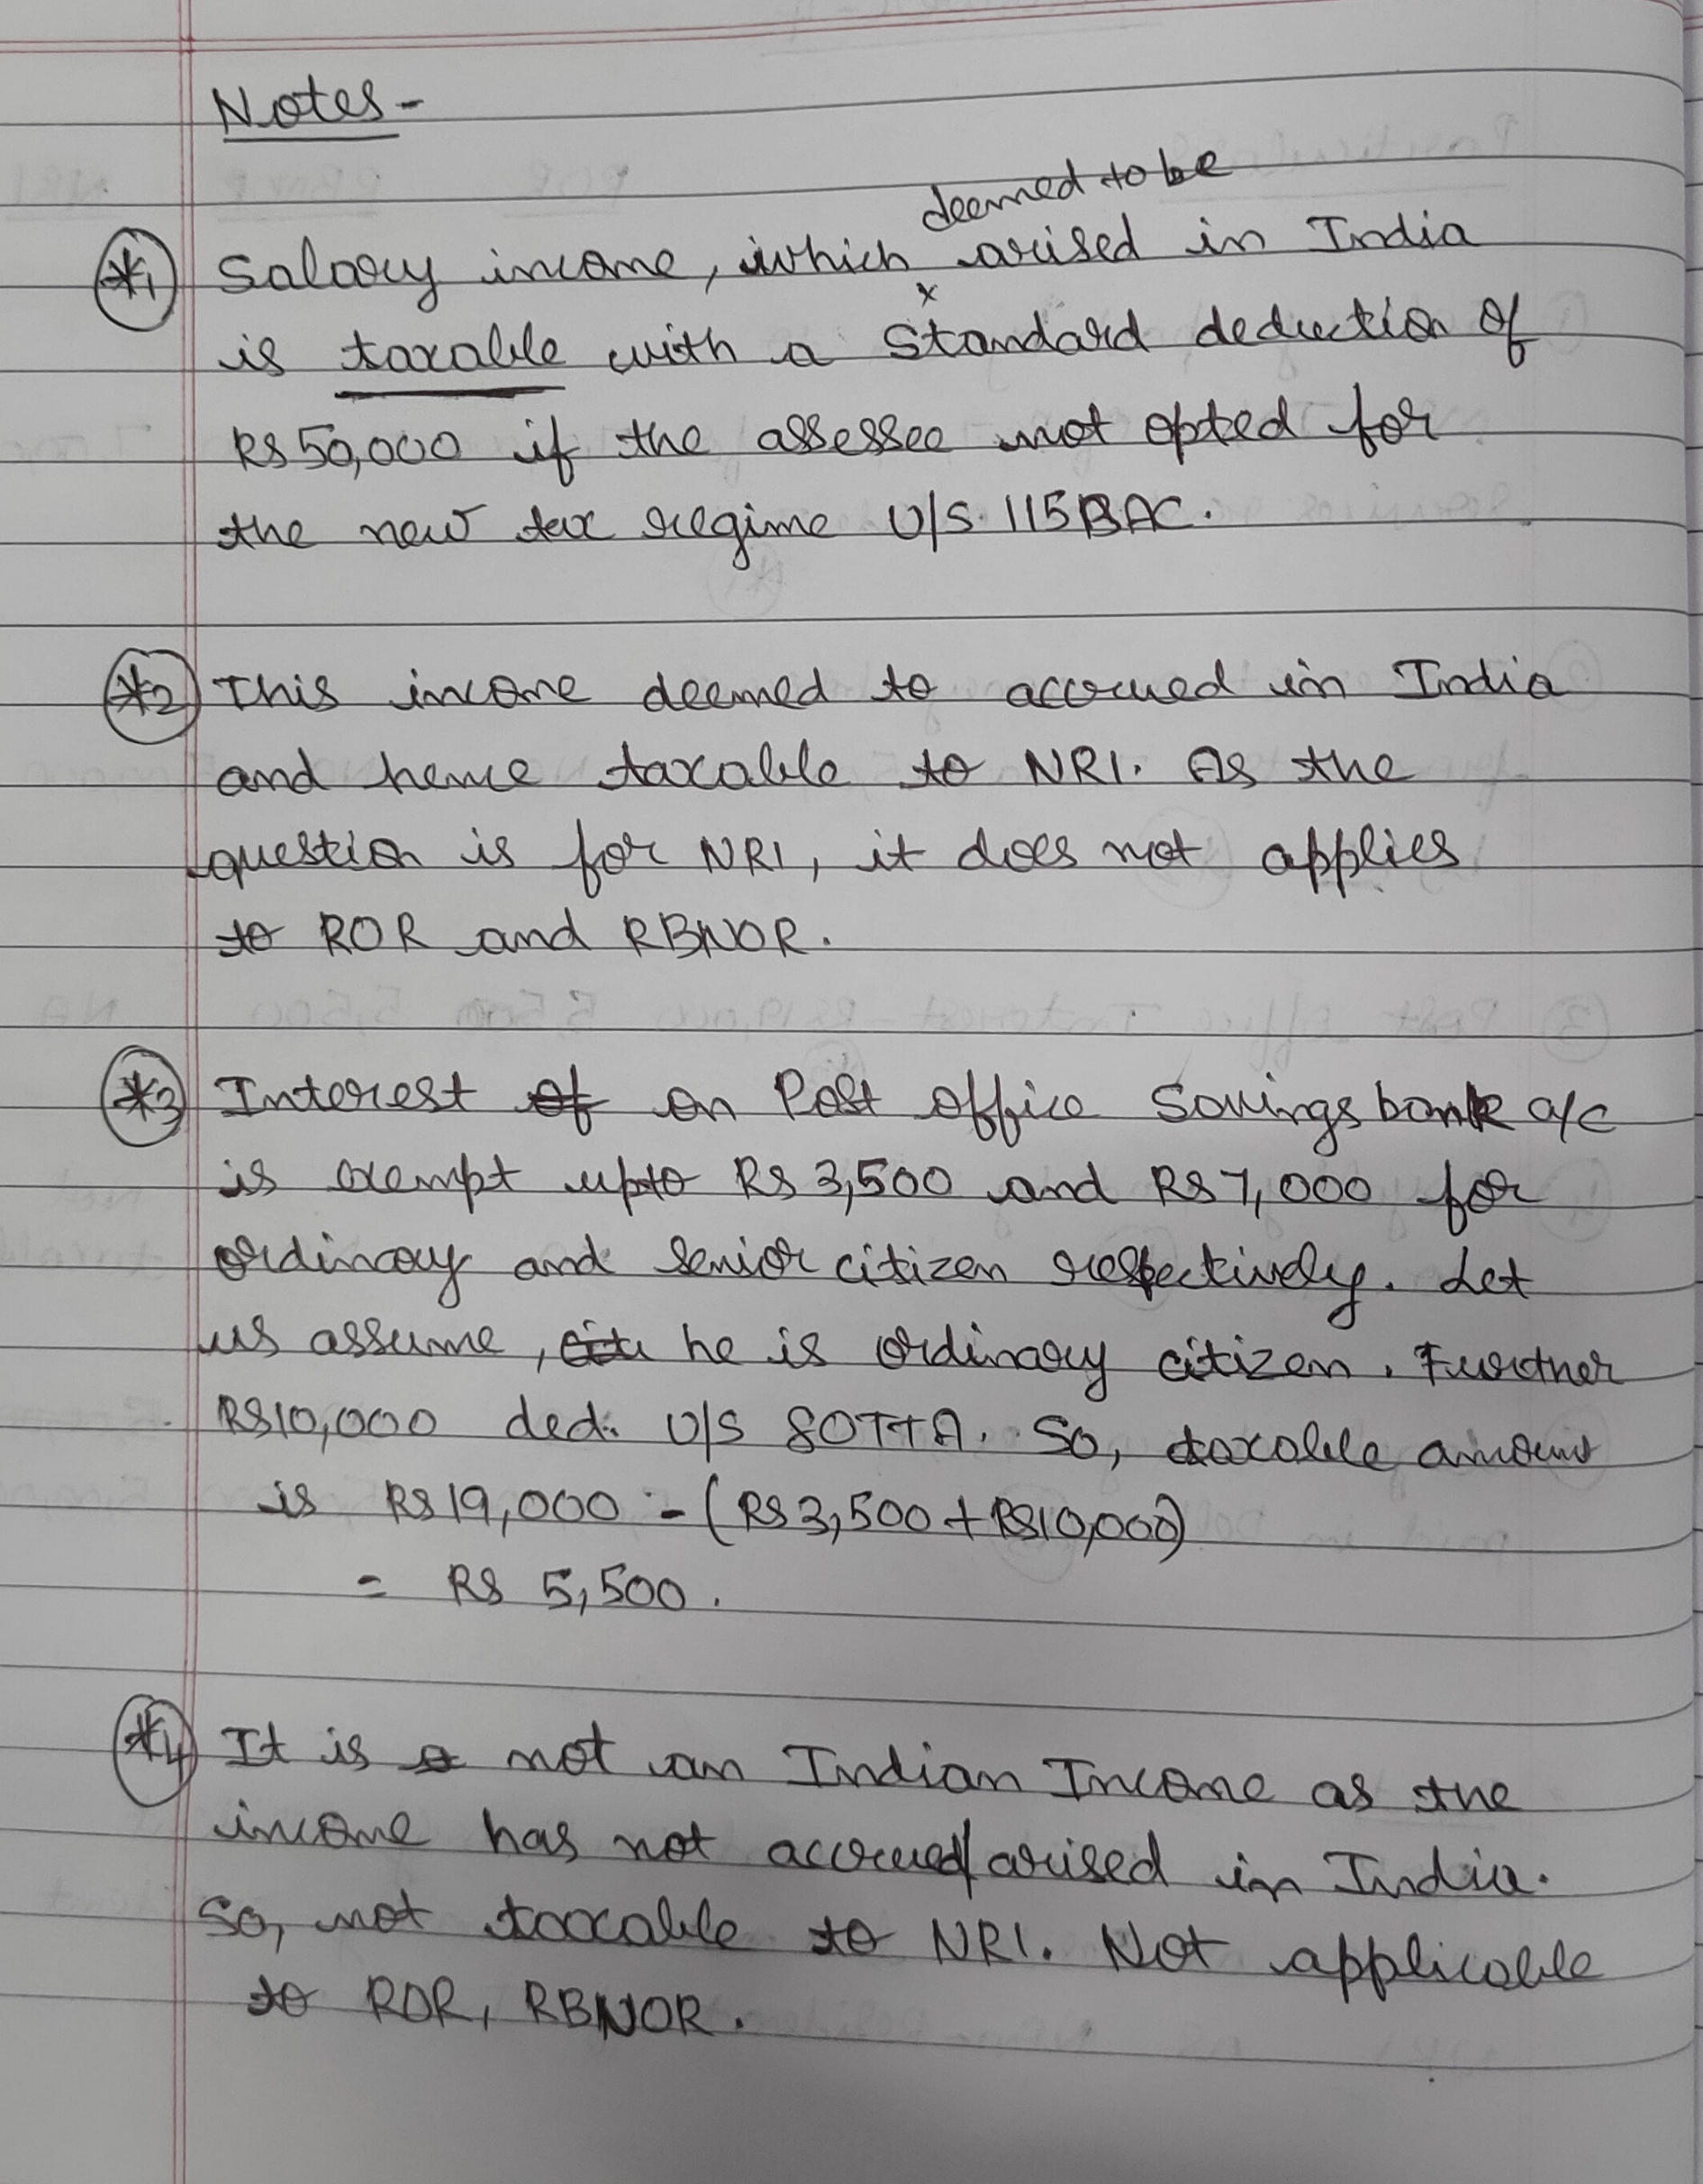 Notes-
deemed to be
*1 Salary income, which x arised in India
is taxable with a Standard deduction of
RS 50,000 if the assessee not opted for
the new tax regime U/S 115BAC.
*2 This income deemed to accrued in India
and hence taxable to NRI. As the
question is for NRI, it does not applies
to ROR and RBNOR.
*3 Interest of on Post office Savings bank a/c
is exempt upto RS 3,500 and RS 7,000 for
ordinary and Senior citizen respectively. Let
us assume, he is ordinary citizen. Further
RS10,000 ded. U/S 80TTA. So, taxable amount
is RS 19,000 - (RS 3,500 + RS10,000)
= RS 5,500.
*4 It is a not an Indian Income as the
income has not accrued/arised in India.
So, not taxable to NRI. Not applicable
to ROR, RBNOR.